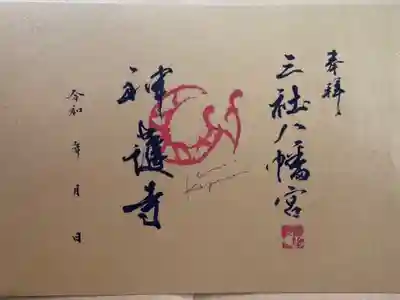 奉拝
三社八幡宮
神護寺
令和 年 月 日